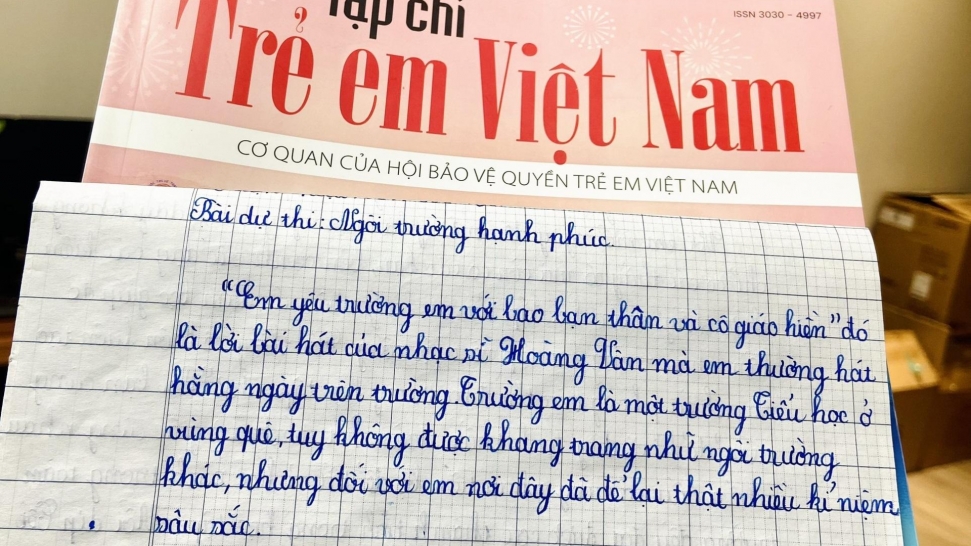 Tạp chí
ISSN 3030 - 4997
Trẻ em Việt Nam
CƠ QUAN CỦA HỘI BẢO VỆ QUYỀN TRẺ EM VIỆT NAM
Bài dự thi: Ngôi trường hạnh phúc.
"Em yêu trường em với bao bạn thân và cô giáo hiền" đó
là lời bài hát của nhạc sĩ Hoàng Vân mà em thường hát
hằng ngày trên trường Trường em là một trường Tiểu học ở
vùng quê, tuy không được khang trang như ngôi trường
khác, nhưng đối với em nơi đây đã để lại thật nhiều kỉ niệm
sâu sắc.